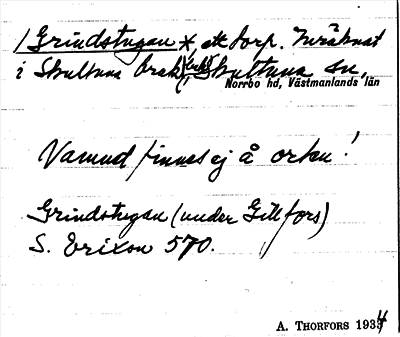 1 Grindstugan *, ett torp. Inräknat
i Skultuna bruk, Skultuna sn,
Norrbo hd, Västmanlands län
Namnet finnes ej å orten!
Grindstugan (under Gillfors)
S. Erixon 570.
A. THORFORS 1934